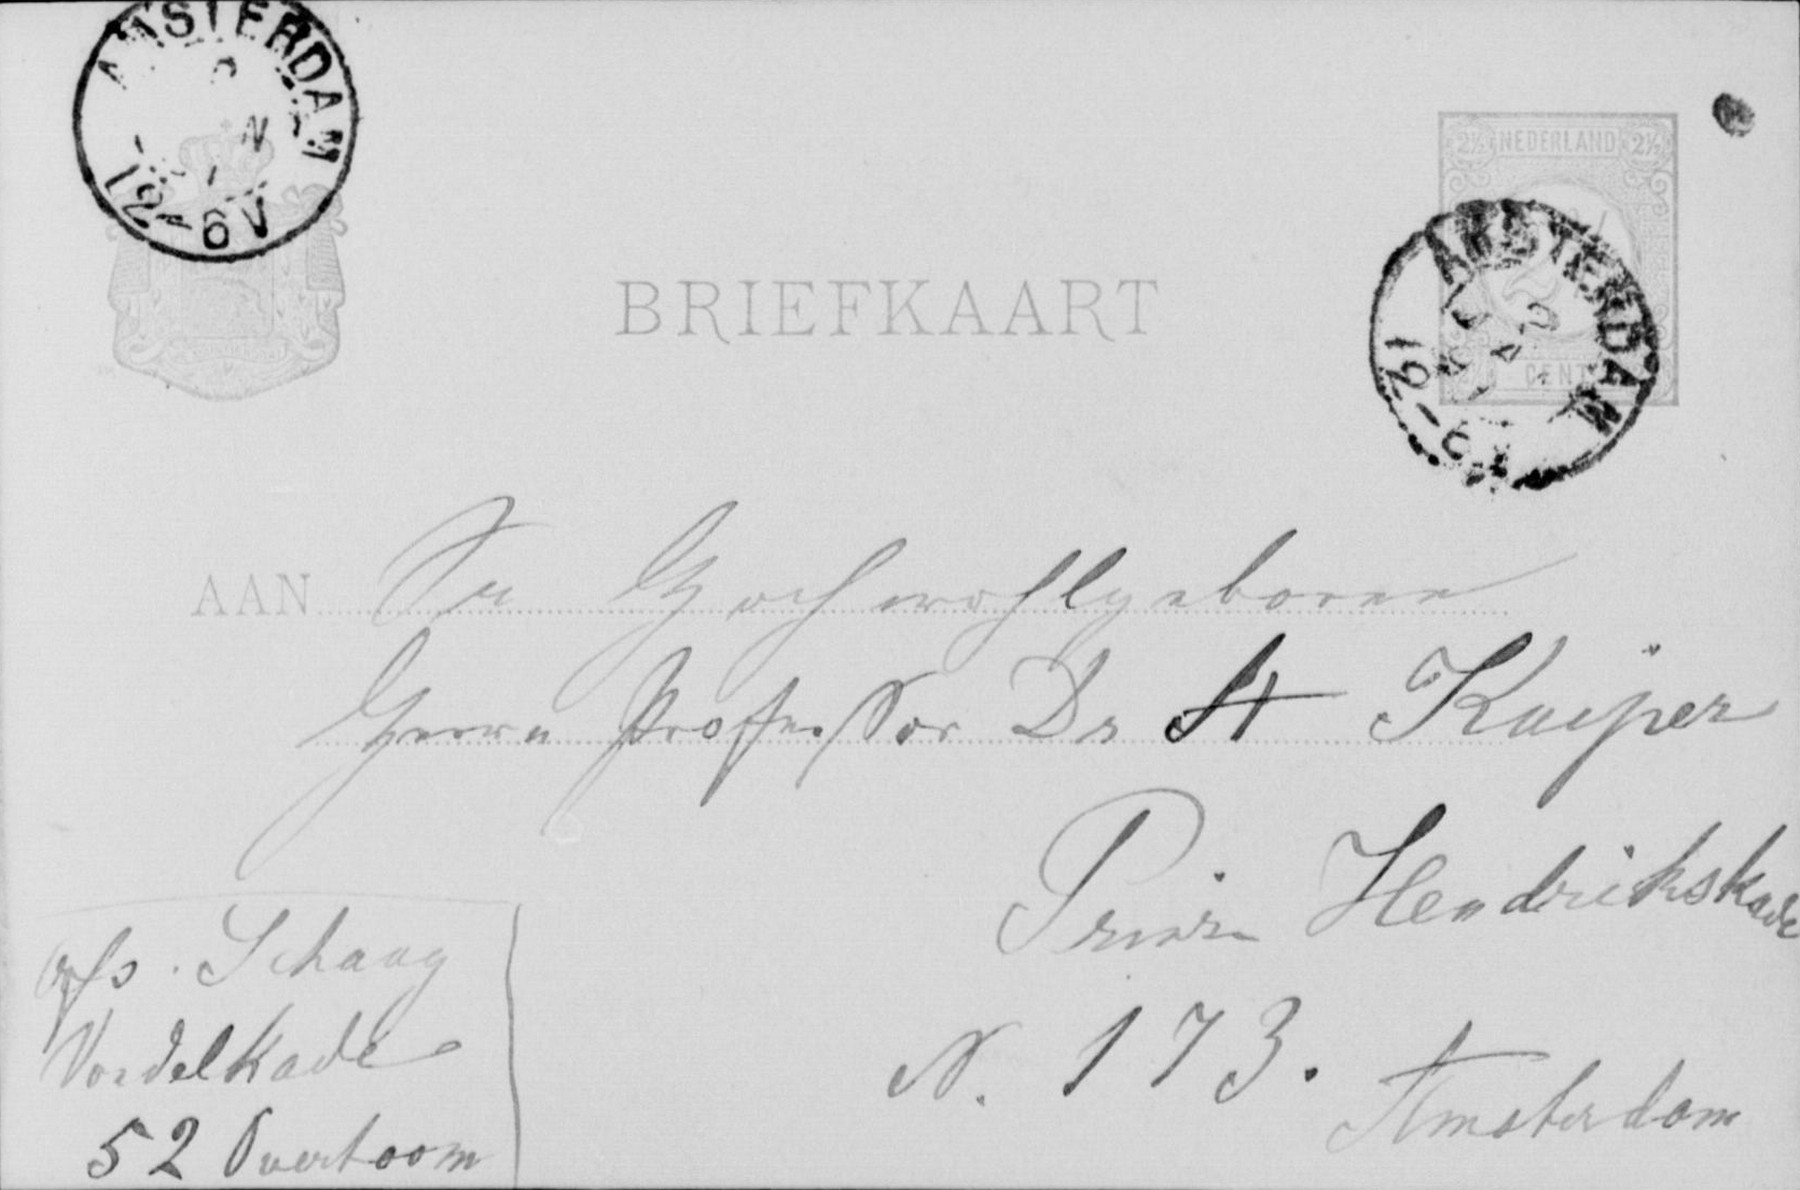 AMSTERDAM
12-6V
NEDERLAND
2½ 2½
AMSTERDAM
12-
CENT
BRIEFKAART
AAN Sr Hochwohlgeboren
Herrn Professor Dr A Kuijper
Prins Hendrikskade
N. 173.
Amsterdam
afs. Schaag
Vondelkade
52 Overtoom